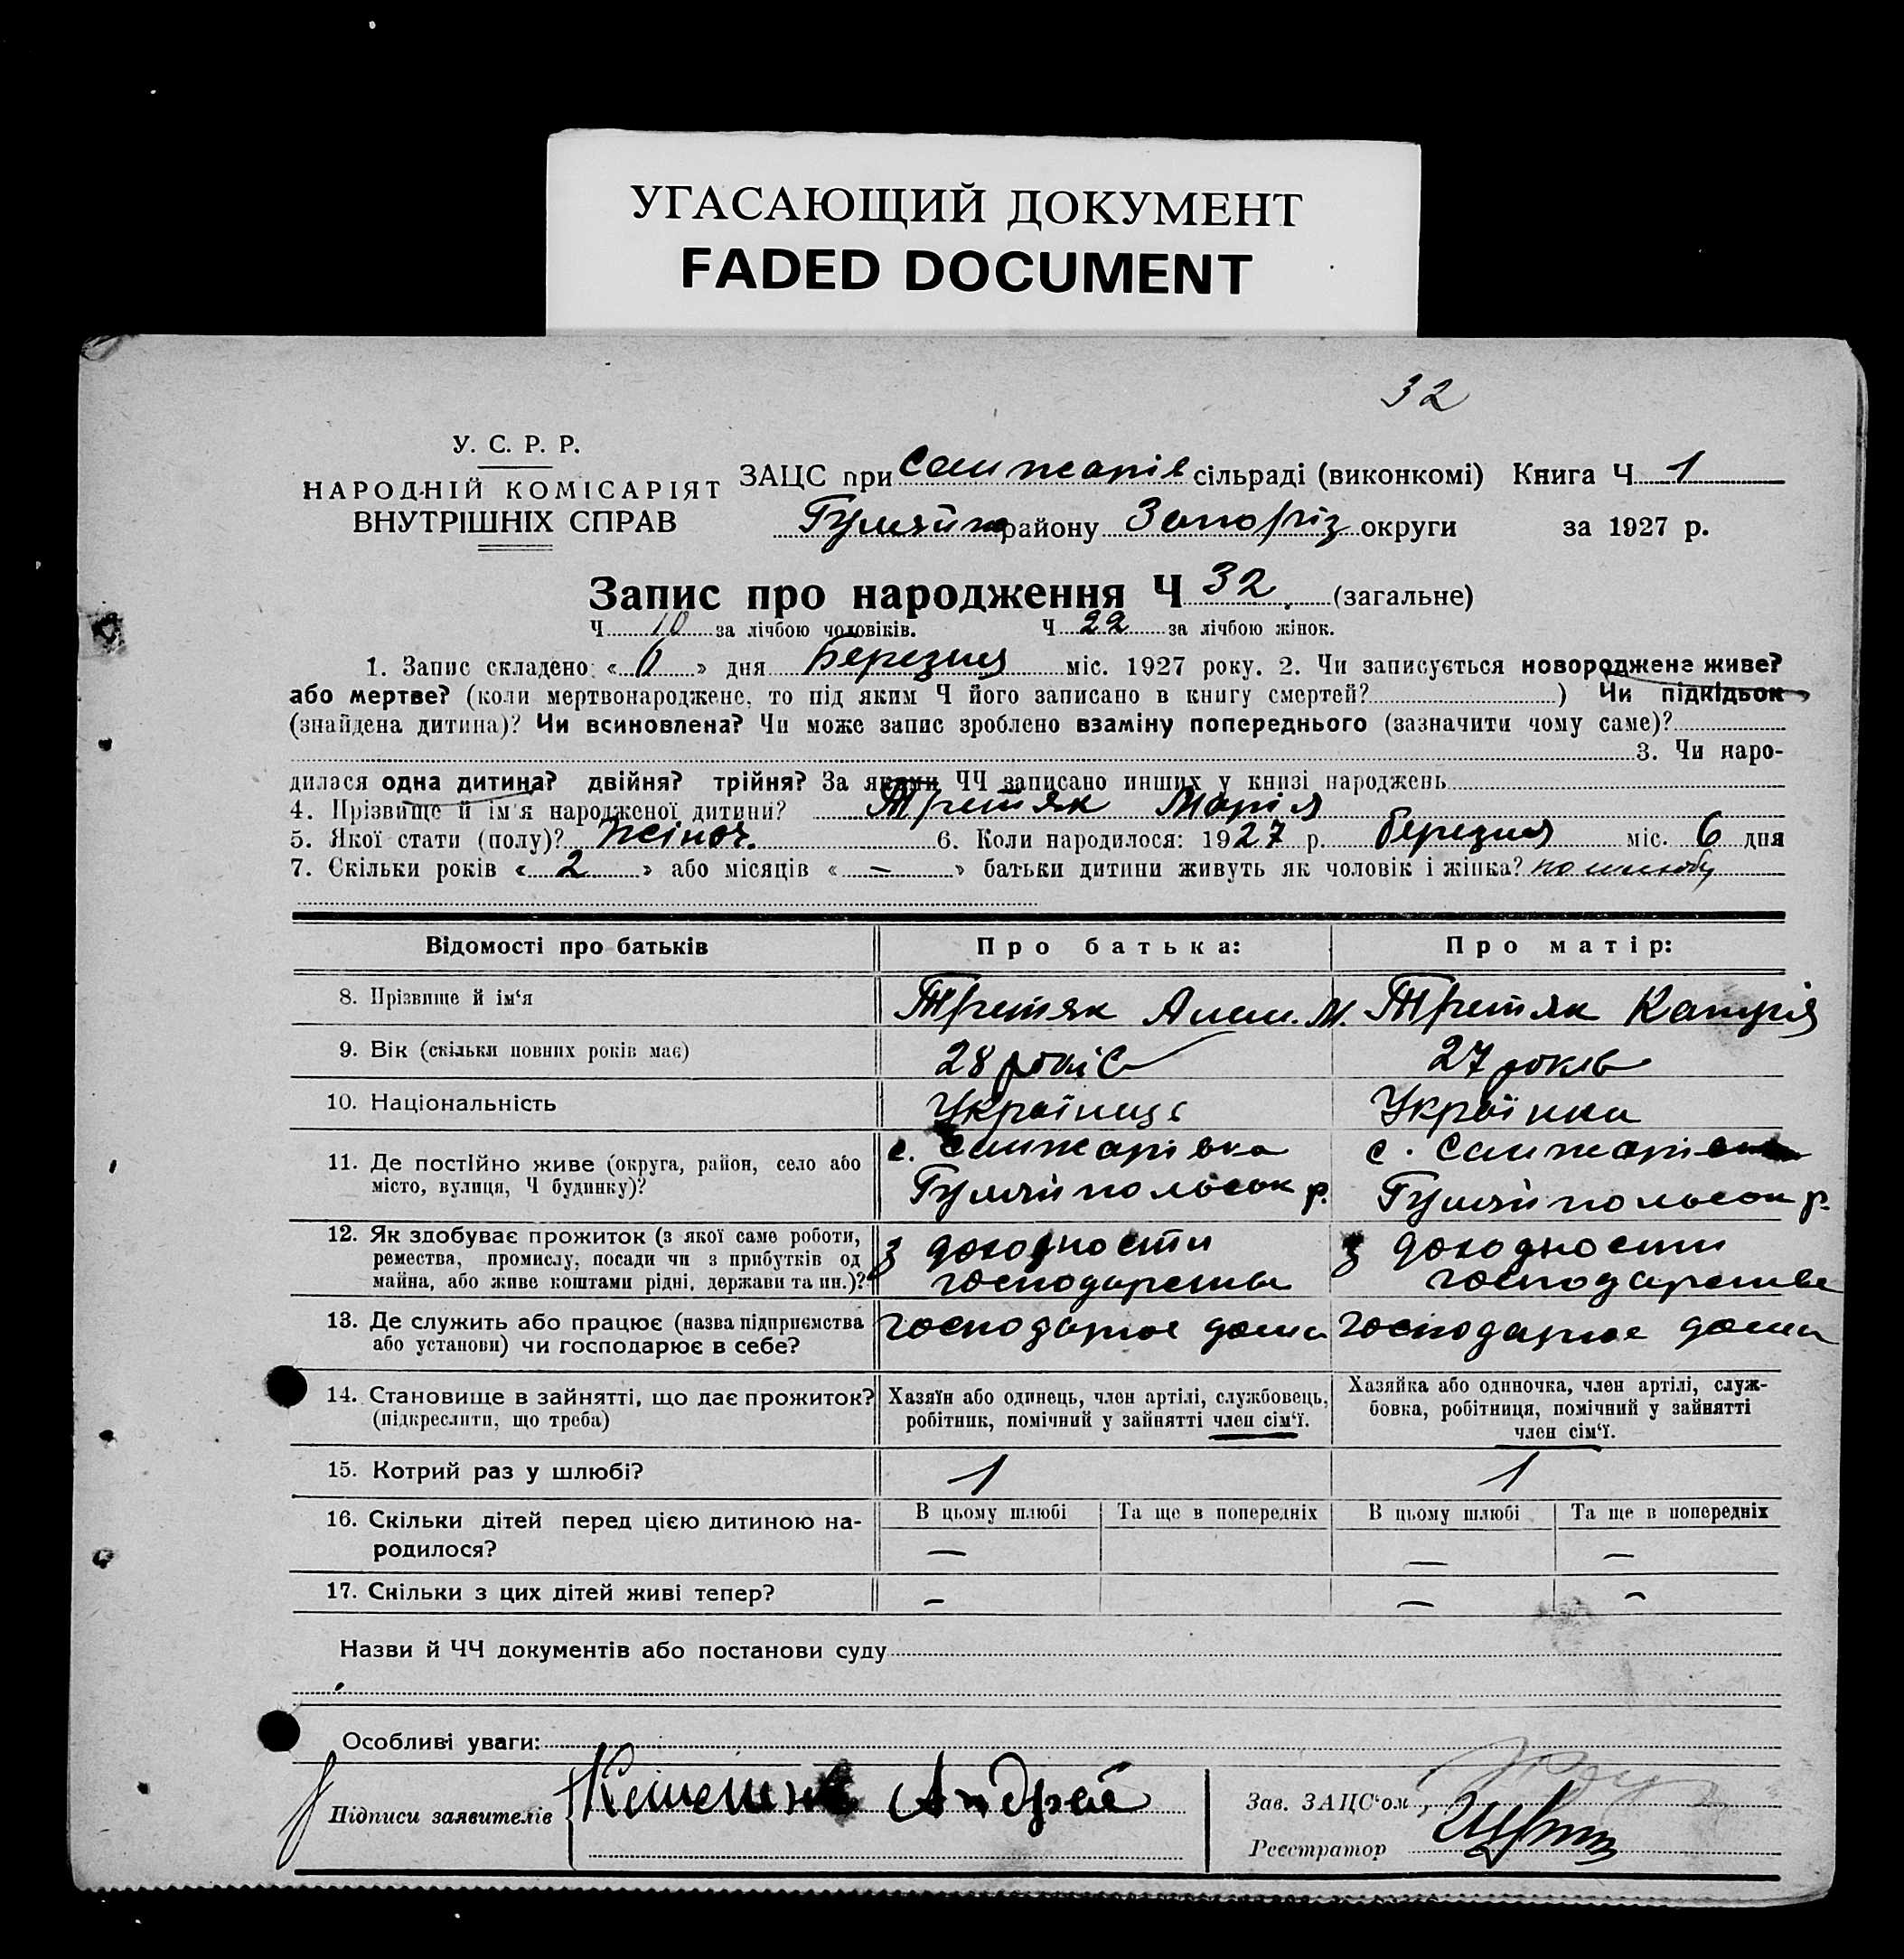 УГАСАЮЩИЙ ДОКУМЕНТ
FADED DOCUMENT
32
У. С. Р. Р.
НАРОДНІЙ КОМІСАРІЯТ
ВНУТРІШНІХ СПРАВ
ЗАЦС при Санжарів сільраді (виконкомі) Книга Ч 1
Гуляйп району Запоріз округи за 1927 р.
Запис про народження Ч 32 (загальне)
Ч 10 за лічбою чоловіків. Ч 22 за лічбою жінок.
1. Запис складено: «6» дня Березня міс. 1927 року. 2. Чи записується новороджене живе?
або мертве? (коли мертвонароджене, то під яким Ч його записано в книгу смертей? ) Чи підкідьок
(знайдена дитина)? Чи всиновлена? Чи може запис зроблено взаміну попереднього (зазначити чому саме)?
3. Чи наро-
дилася одна дитина? двійня? трійня? За якими ЧЧ записано инших у книзі народжень
4. Прізвище й ім'я народженої дитини? Третяк Марія
5. Якої стати (полу)? Жіноч. 6. Коли народилося: 1927 р. березня міс. 6 дня
7. Скільки років «2» або місяців «—» батьки дитини живуть як чоловік і жінка? по шлюбу
Відомості про батьків Про батька: Про матір:
8. Прізвище й ім'я Третяк М. Третяк Катря
9. Вік (скільки повних років має) 28 років 27 років
10. Національність Українець Українка
11. Де постійно живе (округа, район, село або місто, вулиця, Ч будинку)?
с. Санжарівка
Гуляйпольськ р.
с. Санжарівка
Гуляйпольськ р.
12. Як здобуває прожиток (з якої саме роботи,
ремества, промислу, посади чи з прибутків од
майна, або живе коштами рідні, держави та ин.)?
з доходности
господарства
з доходности
господарства
13. Де служить або працює (назва підприємства
або установи) чи господарює в себе?
господарює дома господарює дома
14. Становище в зайнятті, що дає прожиток?
(підкреслити, що треба)
Хазяїн або одинець, член артілі, службовець,
робітник, помічний у зайнятті член сім'ї.
Хазяйка або одиночка, член артілі, служ-
бовка, робітниця, помічний у зайнятті
член сім'ї.
15. Котрий раз у шлюбі? 1 1
16. Скільки дітей перед цією дитиною на-
родилося?
В цьому шлюбі Та ще в попередніх В цьому шлюбі Та ще в попередніх
— — —
17. Скільки з цих дітей живі тепер? — — —
Назви й ЧЧ документів або постанови суду
Особливі уваги:
Підписи заявителів Андрей
Зав. ЗАЦС'ом
Реєстратор